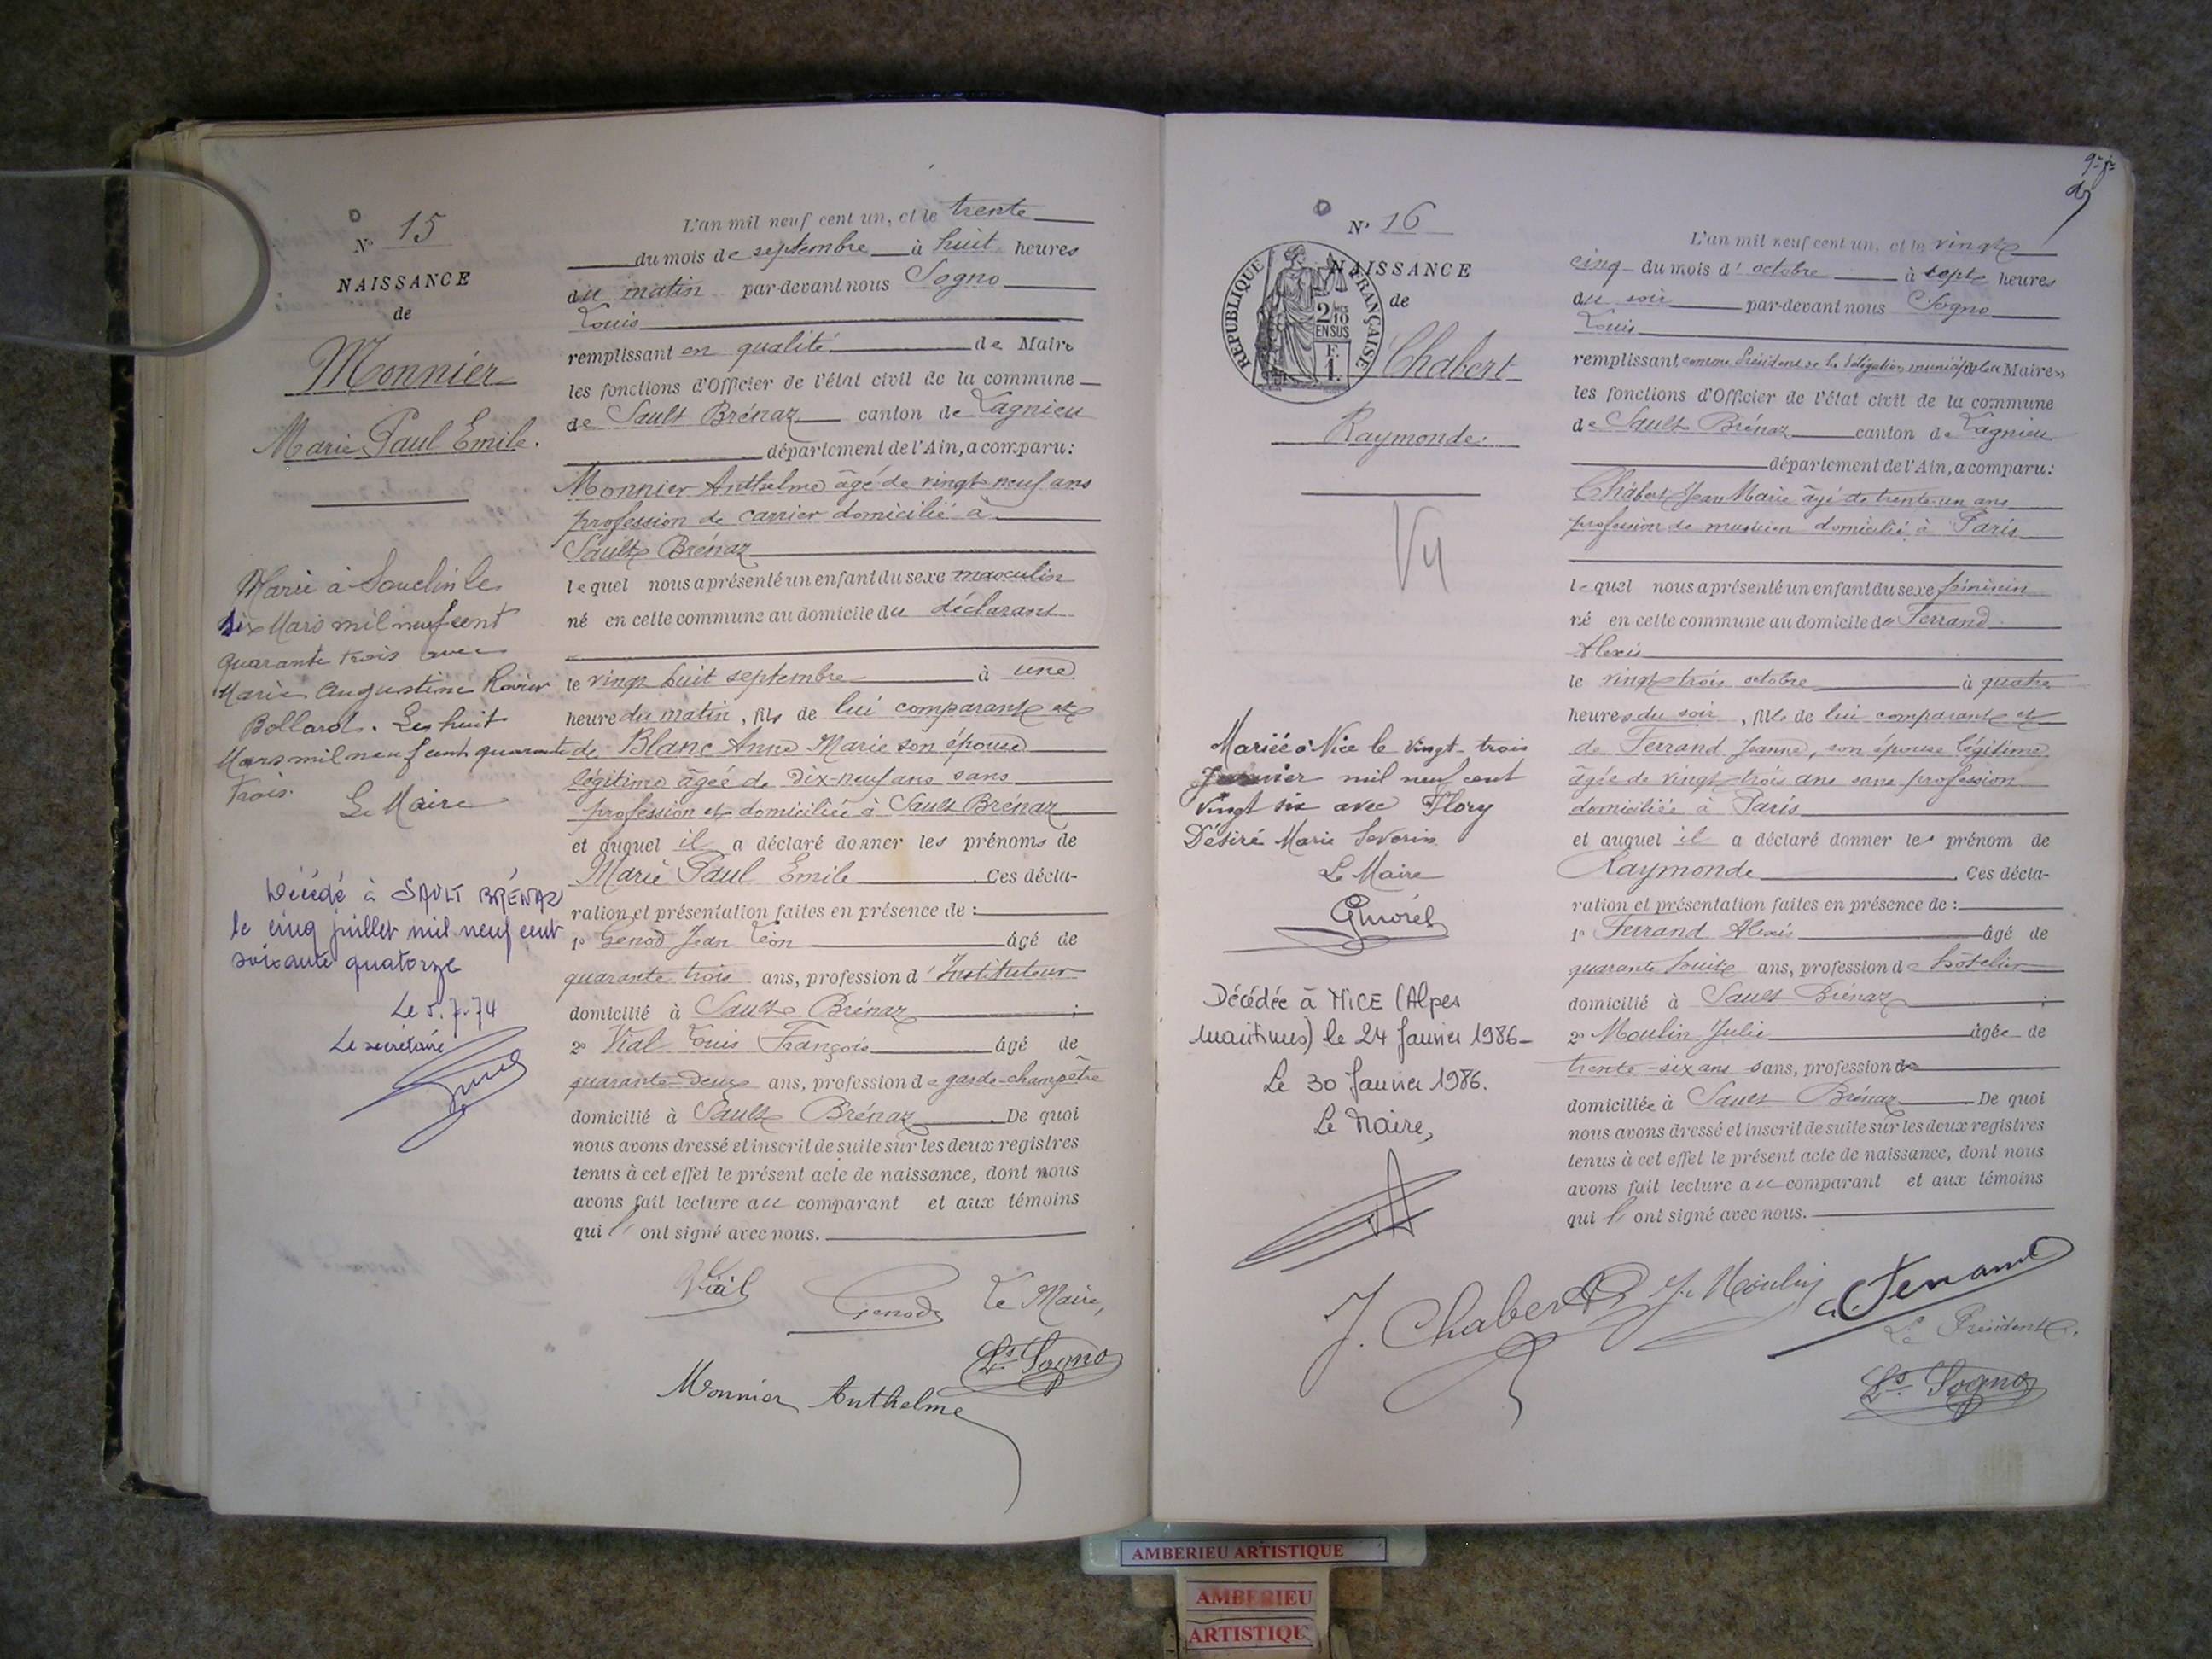 D
Nº 15
NAISSANCE
de
Monnier
Marie Paul Emile.
Marié à Souclin le
six Mars mil neuf cent
quarante trois avec
Marie Augustine Ravier
Bollard. Les huit
Mars mil neuf cent quarante
trois.
Le Maire
Décédé à SAULT BRÉNAZ
le cinq juillet mil neuf cent
soixante quatorze
Le 5.7.74
Le secrétaire
L'an mil neuf cent un, et le trente
du mois de septembre à huit heures
du matin par-devant nous Sogno
Louis
remplissant en qualité de Maire
les fonctions d'Officier de l'état civil de la commune
de Sault Brénaz canton de Lagnieu
département de l'Ain, a comparu:
Monnier Anthelme âgé de vingt neuf ans
profession de carrier domicilié à
Sault Brénaz
lequel nous a présenté un enfant du sexe masculin
né en cette commune au domicile du déclarant
le vingt huit septembre à une
heure du matin, fils de lui comparant et
de Blanc Anne Marie son épouse
légitime âgée de dix-neuf ans sans
profession et domiciliée à Sault Brénaz
et auquel il a déclaré donner les prénoms de
Marie Paul Emile. Ces décla-
ration et présentation faites en présence de :
1º Genod Jean Léon âgé de
quarante trois ans, profession d'Instituteur
domicilié à Sault Brénaz ;
2º Vial Louis François âgé de
quarante-deux ans, profession de garde-champêtre
domicilié à Sault Brénaz. De quoi
nous avons dressé et inscrit de suite sur les deux registres
tenus à cet effet le présent acte de naissance, dont nous
avons fait lecture au comparant et aux témoins
qui l'ont signé avec nous.
Vial Genod Le Maire,
Ls Sogno
Monnier Anthelme
D
Nº 16
RÉPUBLIQUE FRANÇAISE
2/10
EN SUS
F.
1.
NAISSANCE
de
Chabert
Raymonde.
Vu
Mariée à Nice le vingt-trois
Janvier mil neuf cent
vingt six avec Flory
Désiré Marie Severin
Le Maire
GMorel
Décédée à NICE (Alpes
Maritimes) le 24 Janvier 1986-
Le 30 Janvier 1986.
Le Maire,
L'an mil neuf cent un, et le vingt
cinq du mois d'octobre à sept heures
du soir par-devant nous Sogno
Louis
remplissant comme Président de la délégation municipale Maire
les fonctions d'Officier de l'état civil de la commune
de Sault Brénaz canton de Lagnieu
département de l'Ain, a comparu:
Chabert Jean Marie âgé de trente-un ans
profession de musicien domicilié à Paris
lequel nous a présenté un enfant du sexe féminin
né en cette commune au domicile de Ferrand
Alexis
le vingt-trois octobre à quatre
heures du soir, fille de lui comparant et
de Ferrand Jeanne, son épouse légitime
âgée de vingt-trois ans sans profession
domiciliée à Paris
et auquel il a déclaré donner le prénom de
Raymonde. Ces décla-
ration et présentation faites en présence de :
1º Ferrand Alexis âgé de
quarante huit ans, profession de hôtelier
domicilié à Sault Brénaz ;
2º Moulin Julie âgée de
trente-six ans sans, profession
domiciliée à Sault Brénaz. De quoi
nous avons dressé et inscrit de suite sur les deux registres
tenus à cet effet le présent acte de naissance, dont nous
avons fait lecture au comparant et aux témoins
qui l'ont signé avec nous.
J. Chabert J. Moulin A. Ferrand
Le Président.
Ls Sogno
AMBERIEU ARTISTIQUE
AMBERIEU
ARTISTIQU